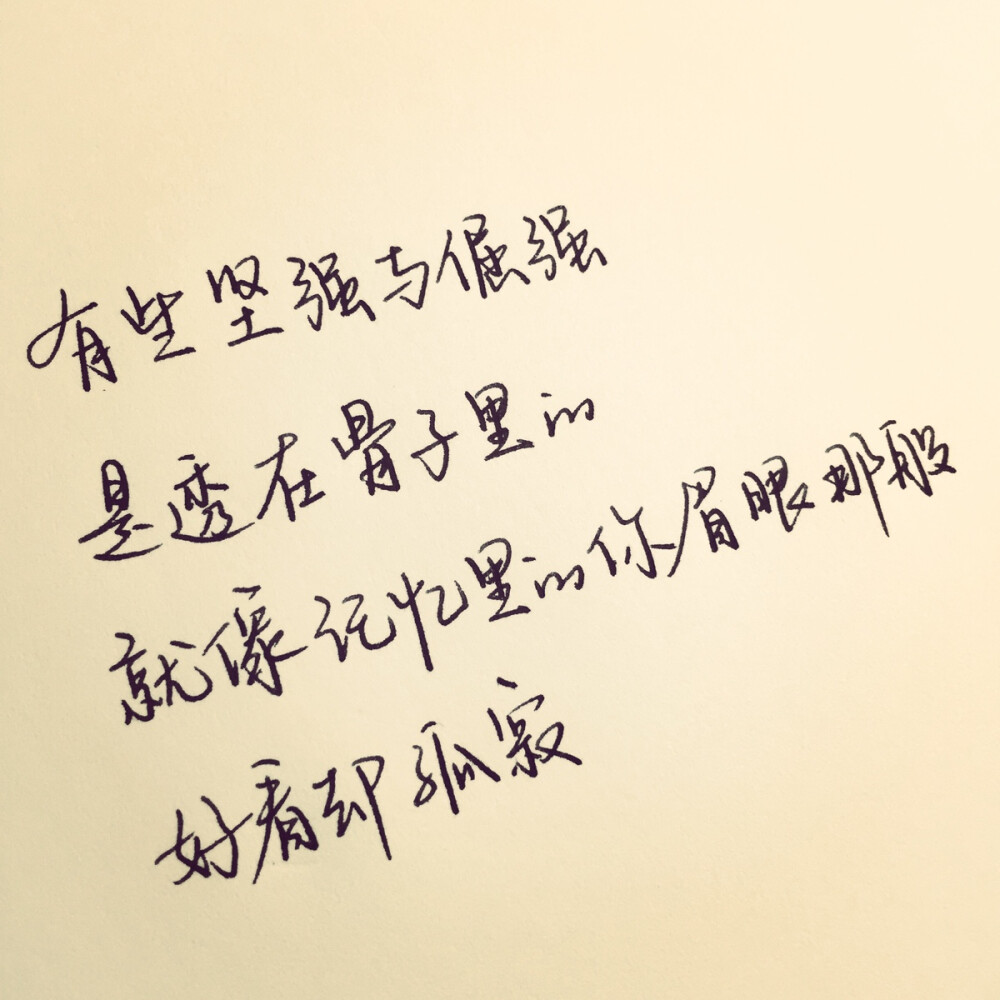 有些坚强与倔强
是透在骨子里的
就像记忆里的你眉眼那般
好看却孤寂